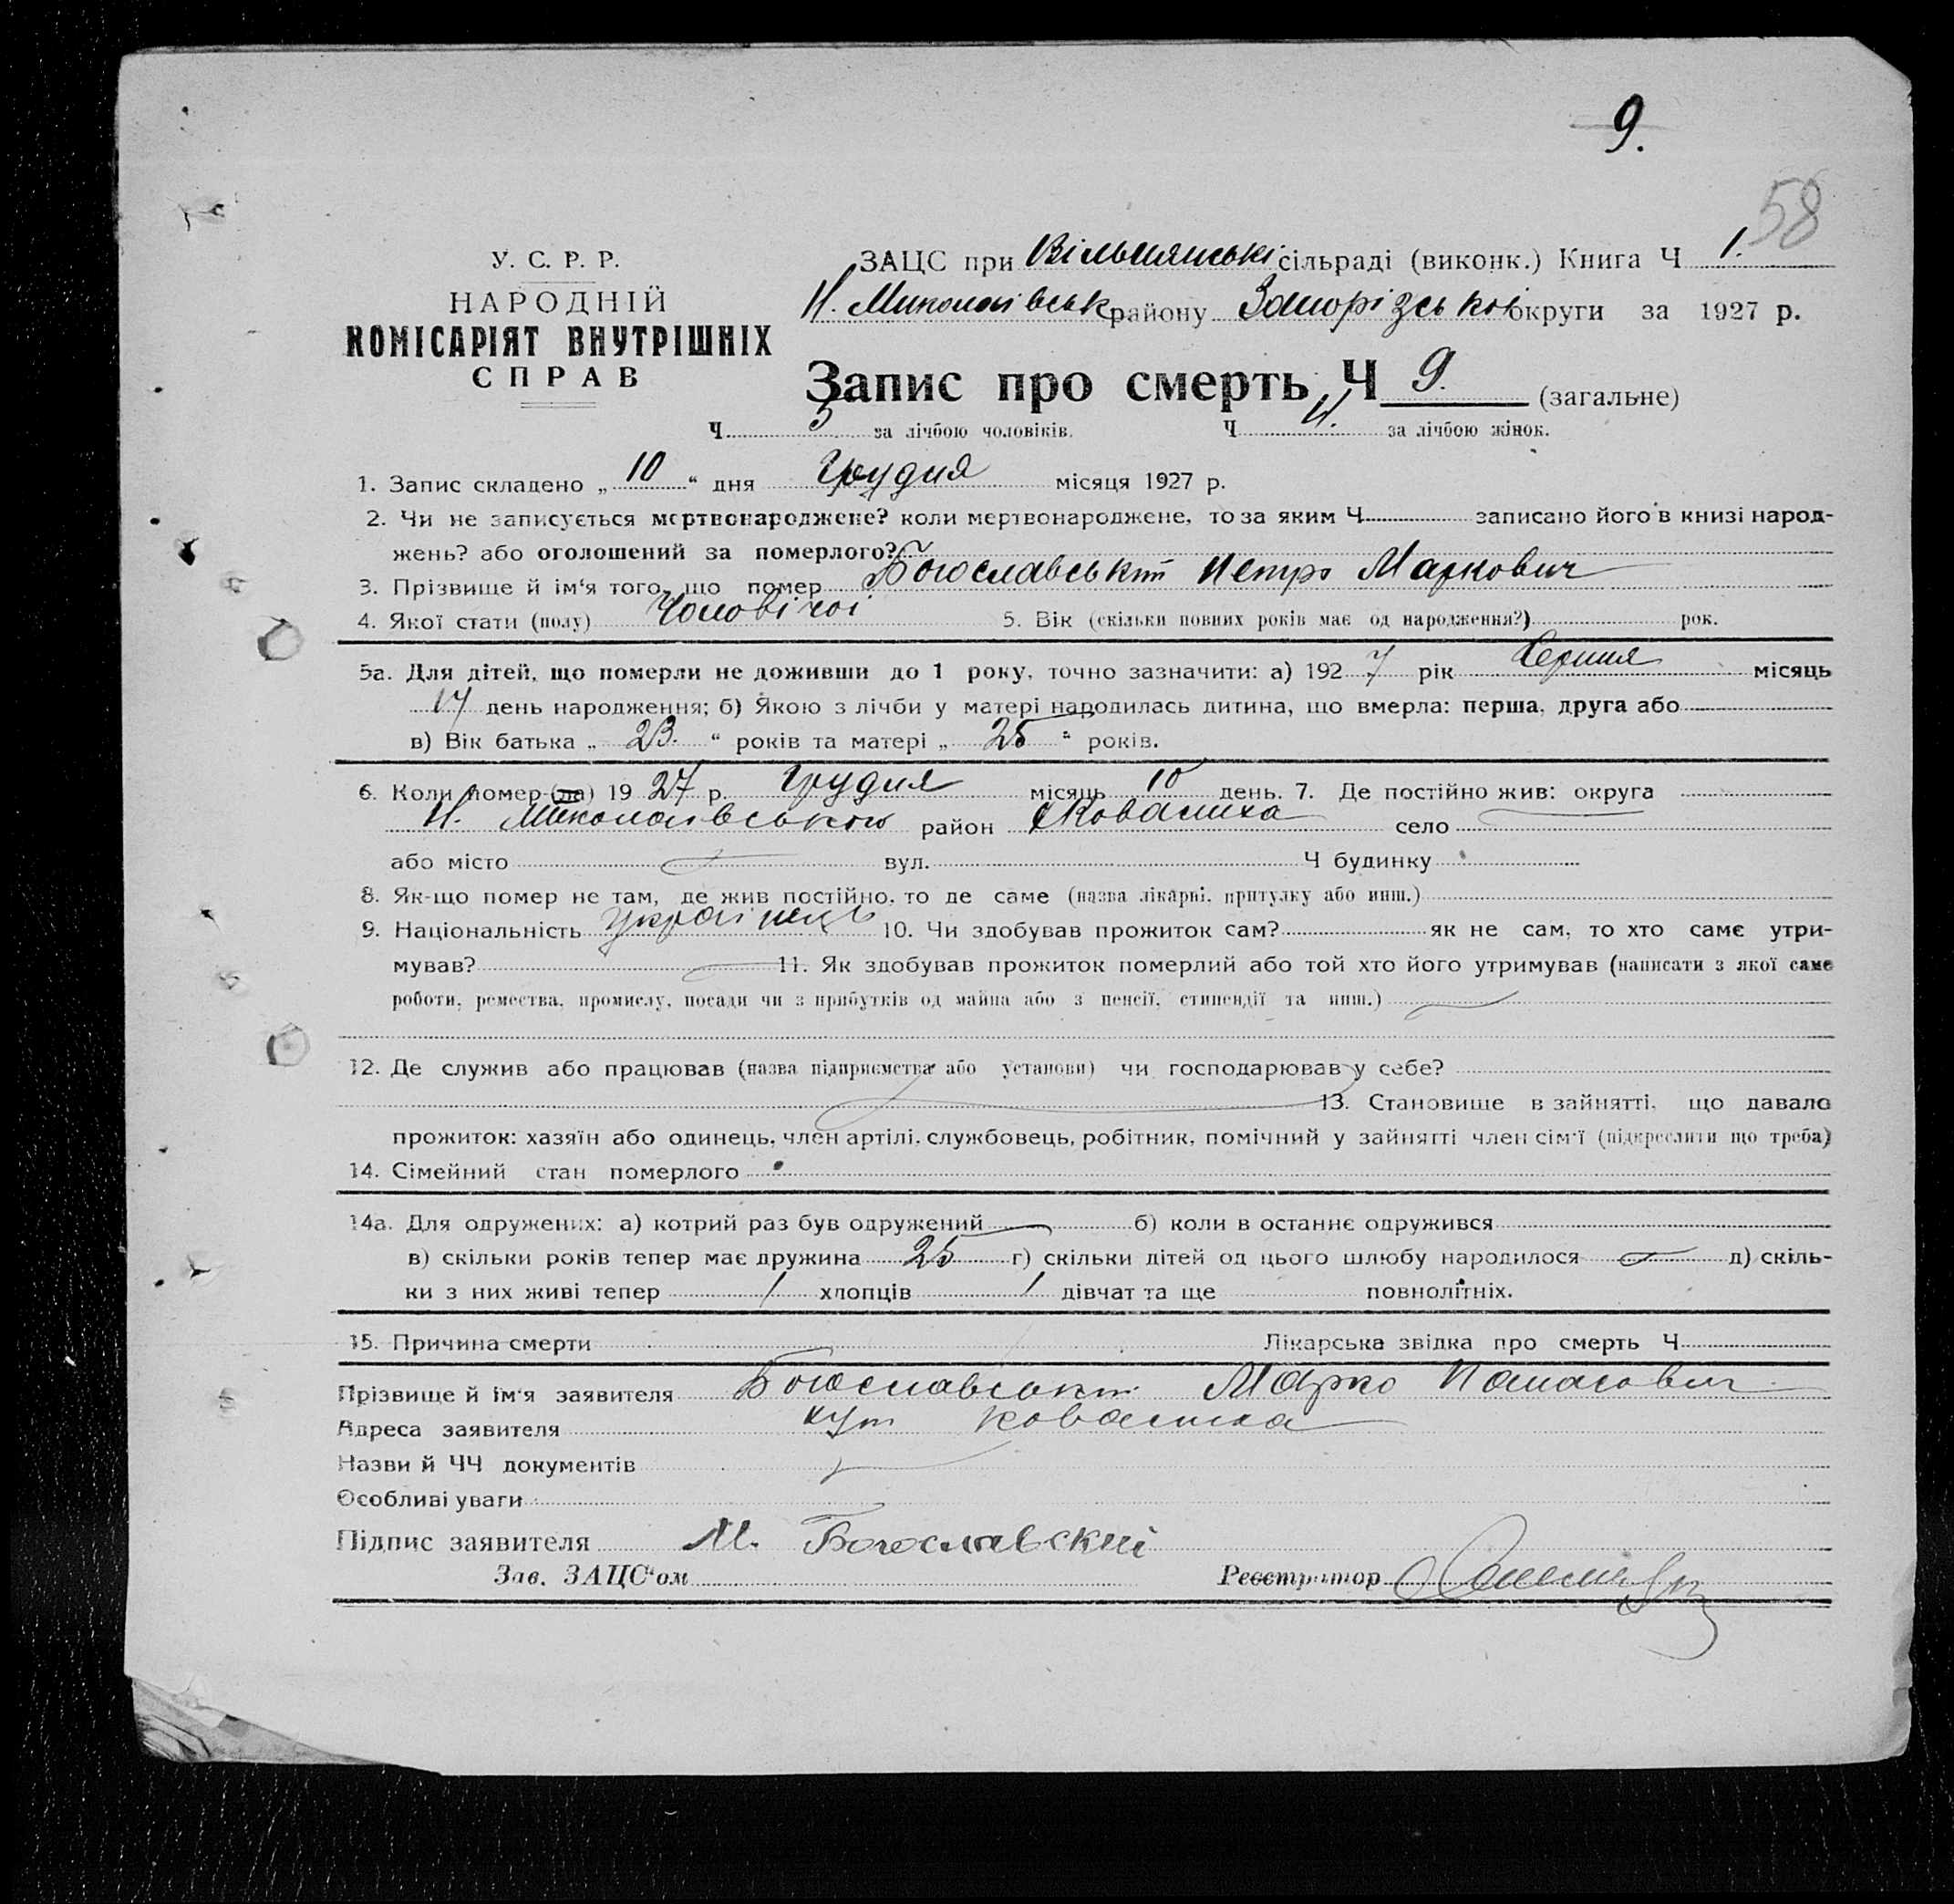 9.
58
У. С. Р. Р.
НАРОДНІЙ
КОМІСАРІЯТ ВНУТРІШНІХ
СПРАВ
ЗАЦС при Вільшянські сільраді (виконк.) Книга Ч 1.
Н. Миколаївськ району Запорізької округи за 1927 р.
Запис про смерть Ч 9. (загальне)
Ч 5 за лічбою чоловіків. Ч 4. за лічбою жінок.
1. Запис складено „ 10 “ дня Грудня місяця 1927 р.
2. Чи не записується мертвонароджене? коли мертвонароджене, то за яким Ч записано його в книзі народ-
жень? або оголошений за померлого?
3. Прізвище й ім‘я того, що помер Богославський Петро Маркович
4. Якої стати (полу) Чоловічої 5. Вік (скільки повних років має од народження?) рок.
5а. Для дітей, що померли не доживши до 1 року, точно зазначити: а) 192 7 рік Серпня місяць
17 день народження; б) Якою з лічби у матері народилась дитина, що вмерла: перша, друга або
в) Вік батька „ 23. “ років та матері „ 25 “ років.
6. Коли помер (ла) 19 27 р. Грудня місяць 10 день. 7. Де постійно жив: округа
Н. Миколаївського район Ковалиха село
або місто вул. Ч будинку
8. Як-що помер не там, де жив постійно, то де саме (назва лікарні, притулку або инш.)
9. Національність Українець 10. Чи здобував прожиток сам? як не сам, то хто саме утри-
мував? 11. Як здобував прожиток померлий або той хто його утримував (написати з якої саме
роботи, ремества, промислу, посади чи з прибутків од майна або з пенсії, стипендії та инш.)
12. Де служив або працював (назва підприємства або установи) чи господарював у себе?
13. Становище в зайнятті, що давало
прожиток: хазяїн або одинець, член артілі, службовець, робітник, помічний у зайнятті член сім‘ї (підкреслити що треба)
14. Сімейний стан померлого
14а. Для одружених: а) котрий раз був одружений б) коли в останнє одружився
в) скільки років тепер має дружина 25 г) скільки дітей од цього шлюбу народилося д) скіль-
ки з них живі тепер / хлопців / дівчат та ще повнолітніх.
15. Причина смерти Лікарська звідка про смерть Ч
Прізвище й ім‘я заявителя Богославський Марко Панасович
Адреса заявителя хут Ковалиха
Назви й ЧЧ документів
Особливі уваги
Підпис заявителя М. Богославский
Зав. ЗАЦС‘ом Реєстратор